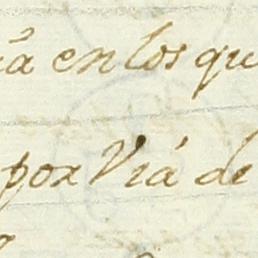 en los qu
por Viá de